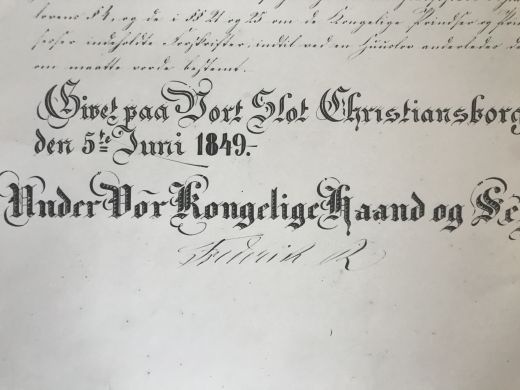 lovens § 4, og de i §§ 21 og 25 om de Kongelige Prindser og
indeholdte Forskrifter, indtil ved en Huuslov anderledes
om maatte vorde bestemt.
Givet paa Vort Slot Christiansborg
den 5te Juni 1849.-
Under Vor Kongelige Haand og
Frederik R